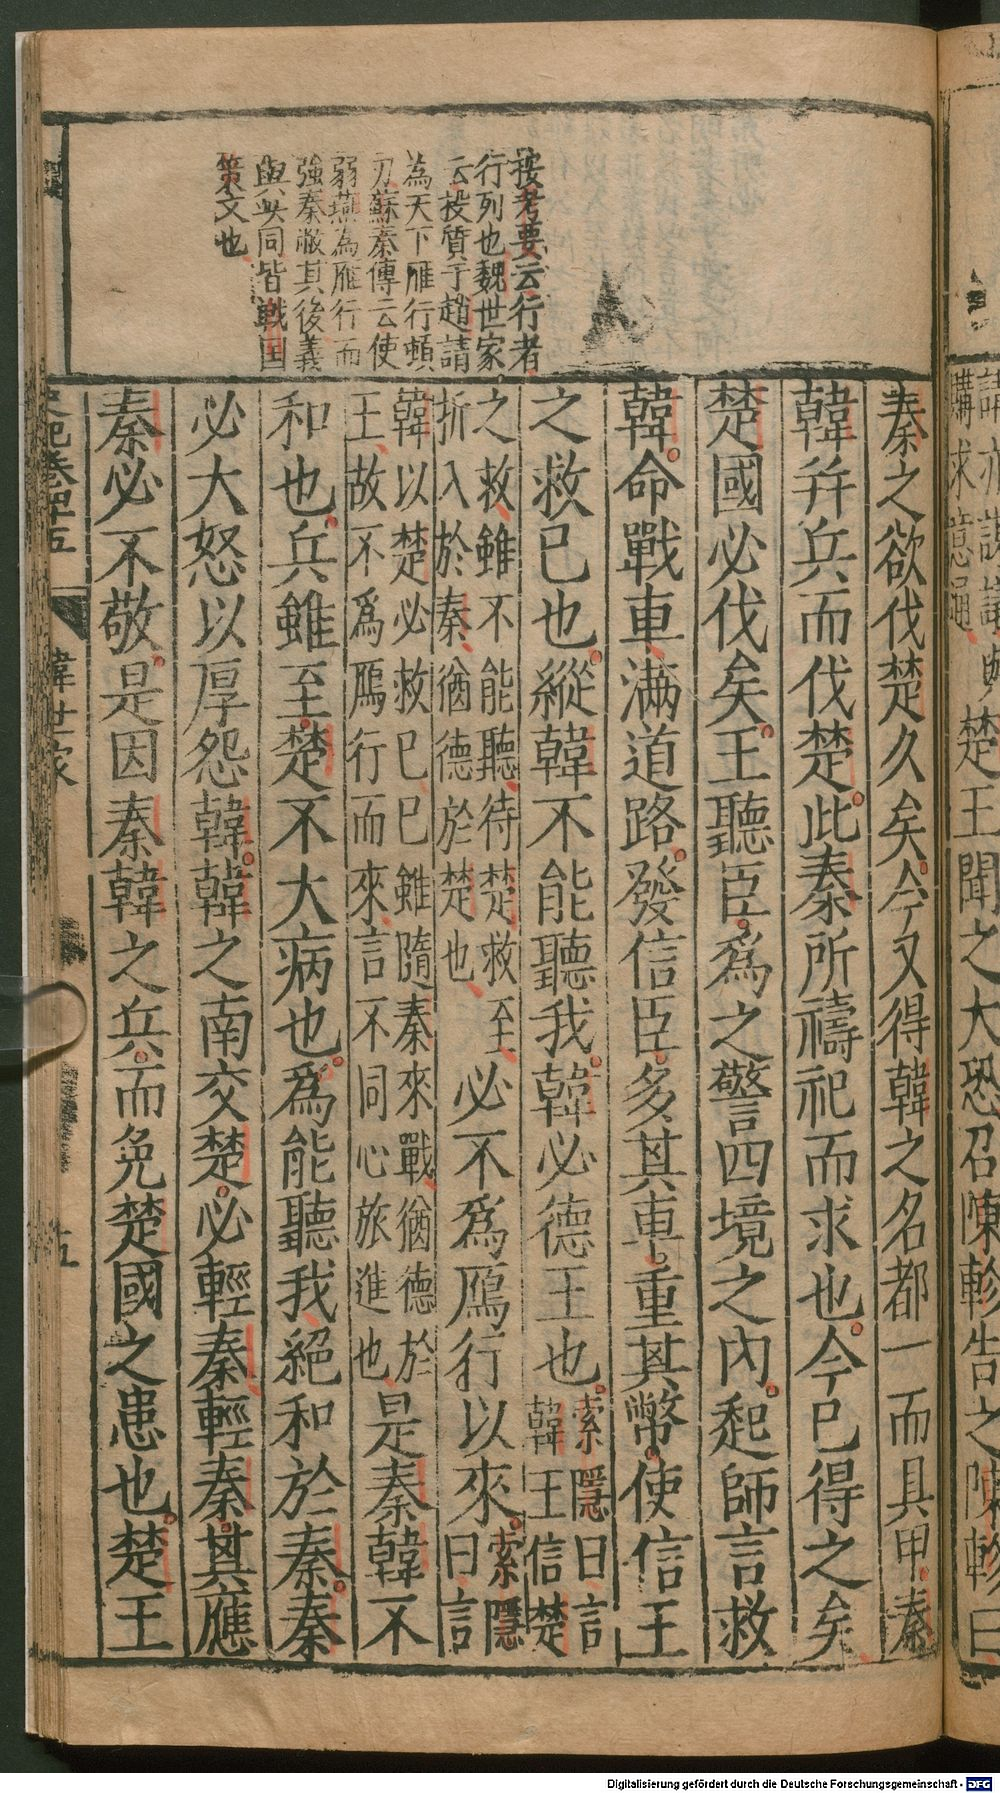 講
購求意通
楚王聞之大恐召陳軫告之陳軫曰
秦之欲伐楚久矣今又得韓之名都一而具甲秦
韓并兵而伐楚此秦所禱祀而求也今已得之矣
楚國必伐矣王聽臣爲之警四境之內起師言救
韓命戰車滿道路發信臣多其車重其幣使信王
之救已也縱韓不能聽我韓必德王也索隱曰言
韓王信楚
之救雖不能聽待楚救至
折入於秦猶德於楚也
必不爲鴈行以來索隱
曰言
韓以楚必救已已雖隨秦來戰猶德於
王故不爲鴈行而來言不同心旅進也
是秦韓不
和也兵雖至楚不大病也爲能聽我絕和於秦秦
必大怒以厚怨韓韓之南交楚必輕秦輕秦其應
秦必不敬是因秦韓之兵而免楚國之患也楚王
按考要云行者
行列也魏世家
云投質于趙請
為天下雁行頓
刃蘇秦傳云使
弱燕為雁行而
強秦敝其後義
與此同皆戰国
策文也
史記卷四十五
韓世家
十五
Digitalisierung gefördert durch die Deutsche Forschungsgemeinschaft - DFG